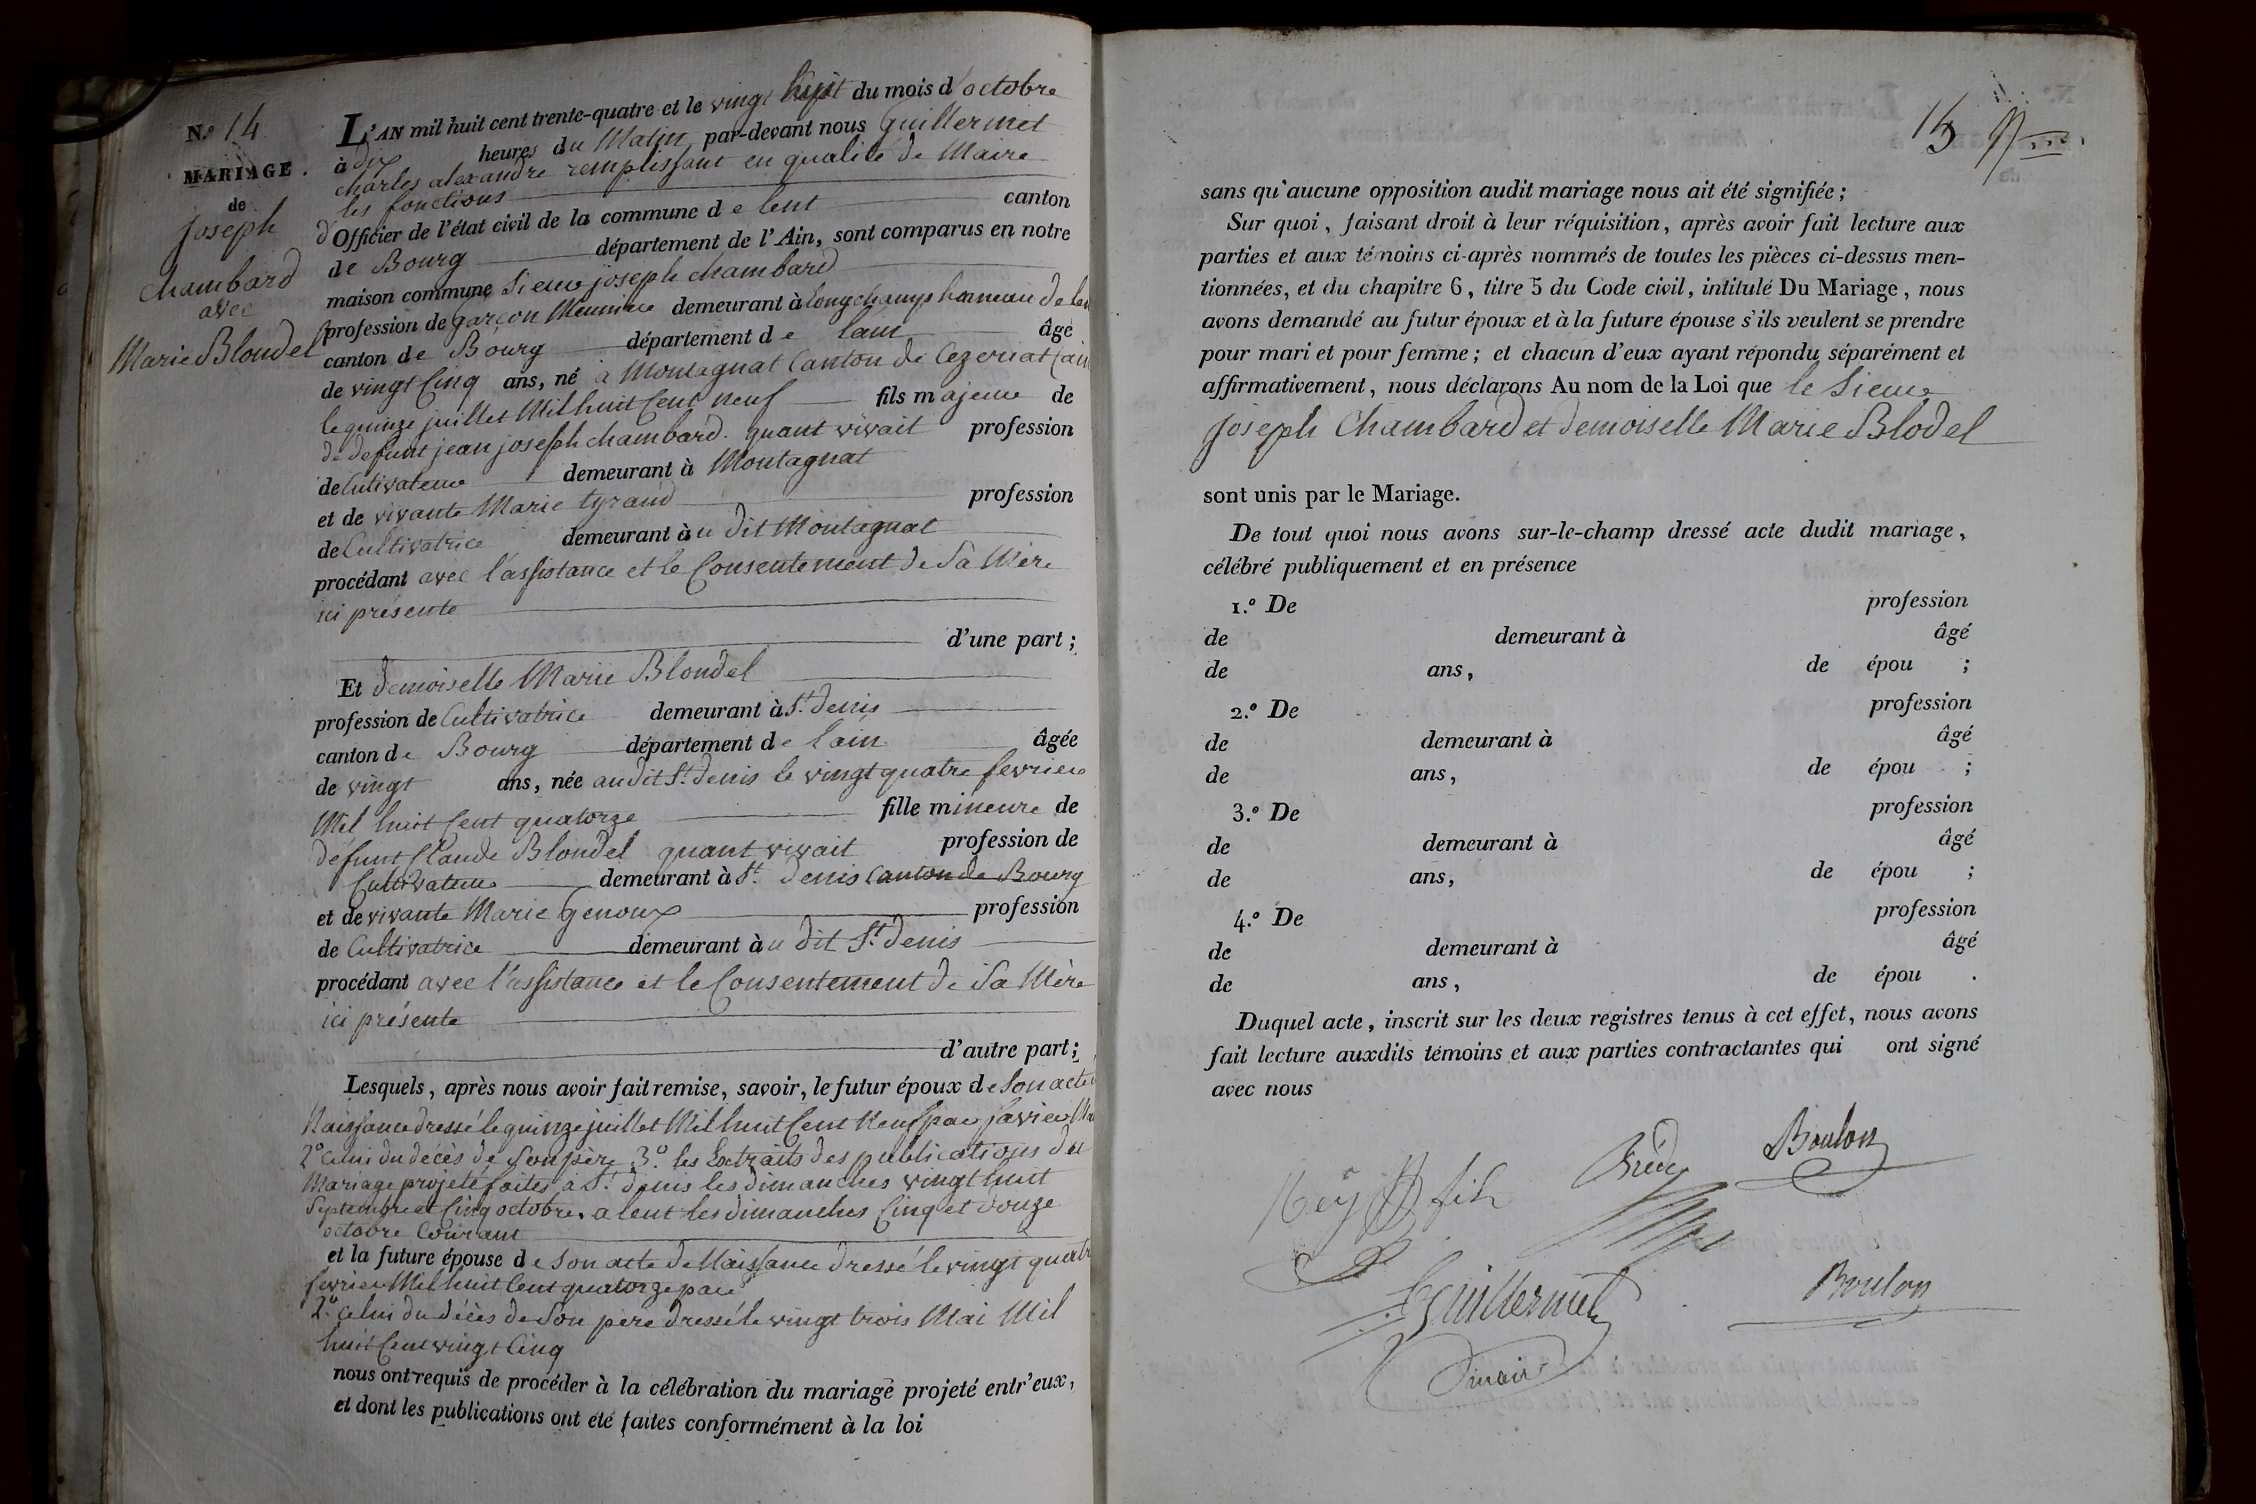 N.º 14
MARIAGE.
de
joseph
chambard
avec
Marie Blondel
L'AN mil huit cent trente-quatre et le vingt huit du mois d'octobre
à dix heures du Matin, par-devant nous Guillermet
charles alexandre remplissant en qualité de Maire
les fonctions
d'Officier de l'état civil de la commune de lent canton
de Bourg département de l'Ain, sont comparus en notre
maison commune Sieur joseph chambard
profession de garçon Meunier demeurant à longchamp hameau de
canton de Bourg département de lain âgé
de vingt Cinq ans, né à Montagnat Canton de Cezeriat (ain
le quinze juillet Mil huit Cent neuf fils majeur de
de defunt jean joseph chambard. quant vivait profession
de Cutivateur demeurant à Montagnat
et de vivante Marie tyrand profession
de Cultivatrice demeurant àu dit Montagnat
procédant avec l'assistance et le Consentement de Sa Mère
ici présente
d'une part ;
Et demoiselle Marie Blondel
profession de Cultivatrice demeurant à St. denis
canton de Bourg département de lain âgée
de vingt ans, née audit St. denis le vingt quatre fevrier
Mil huit Cent quatorze fille mineure de
défunt Claude Blondel quant vivait profession de
Cultivateur demeurant à St. denis Canton de Bourg
et de vivante Marie Genoux profession
de Cultivatrice demeurant àu dit St. denis
procédant avec l'assistance et le Consentement de Sa Mère
ici présente
d'autre part ;
Lesquels, après nous avoir fait remise, savoir, le futur époux de Son acte
Naissance dressé le quinze juillet Mil huit Cent Neuf par
2º celui du décès de Son père 3.º les Extraits des publications du
Mariage projeté faites à St. denis les dimanches vingt huit
Septembre et Cinq octobre. a lent les dimanches Cinq et douze
octobre Courant
et la future épouse de Son acte de Naissance dressé le vingt quatre
fevrier Mil huit Cent quatorze par
2.º celui du décès de Son père dressé le vingt trois Mai Mil
huit Cent vingt Cinq
nous ont requis de procéder à la célébration du mariage projeté entr'eux,
et dont les publications ont été faites conformément à la loi
sans qu'aucune opposition audit mariage nous ait été signifiée ;
Sur quoi, faisant droit à leur réquisition, après avoir fait lecture aux
parties et aux témoins ci-après nommés de toutes les pièces ci-dessus men-
tionnées, et du chapitre 6, titre 5 du Code civil, intitulé Du Mariage, nous
avons demandé au futur époux et à la future épouse s'ils veulent se prendre
pour mari et pour femme ; et chacun d'eux ayant répondu séparément et
affirmativement, nous déclarons Au nom de la Loi que le Sieur
joseph Chambard et demoiselle Marie Blodel
sont unis par le Mariage.
De tout quoi nous avons sur-le-champ dressé acte dudit mariage,
célébré publiquement et en présence
1.º De profession
de demeurant à âgé
de ans, de épou ;
2.º De profession
de demeurant à âgé
de ans, de épou ;
3.º De profession
de demeurant à âgé
de ans, de épou ;
4.º De profession
de demeurant à âgé
de ans, de épou .
Duquel acte, inscrit sur les deux registres tenus à cet effet, nous avons
fait lecture auxdits témoins et aux parties contractantes qui ont signé
avec nous
Boulon
Rey fils
Guillermet
Boulon
maire